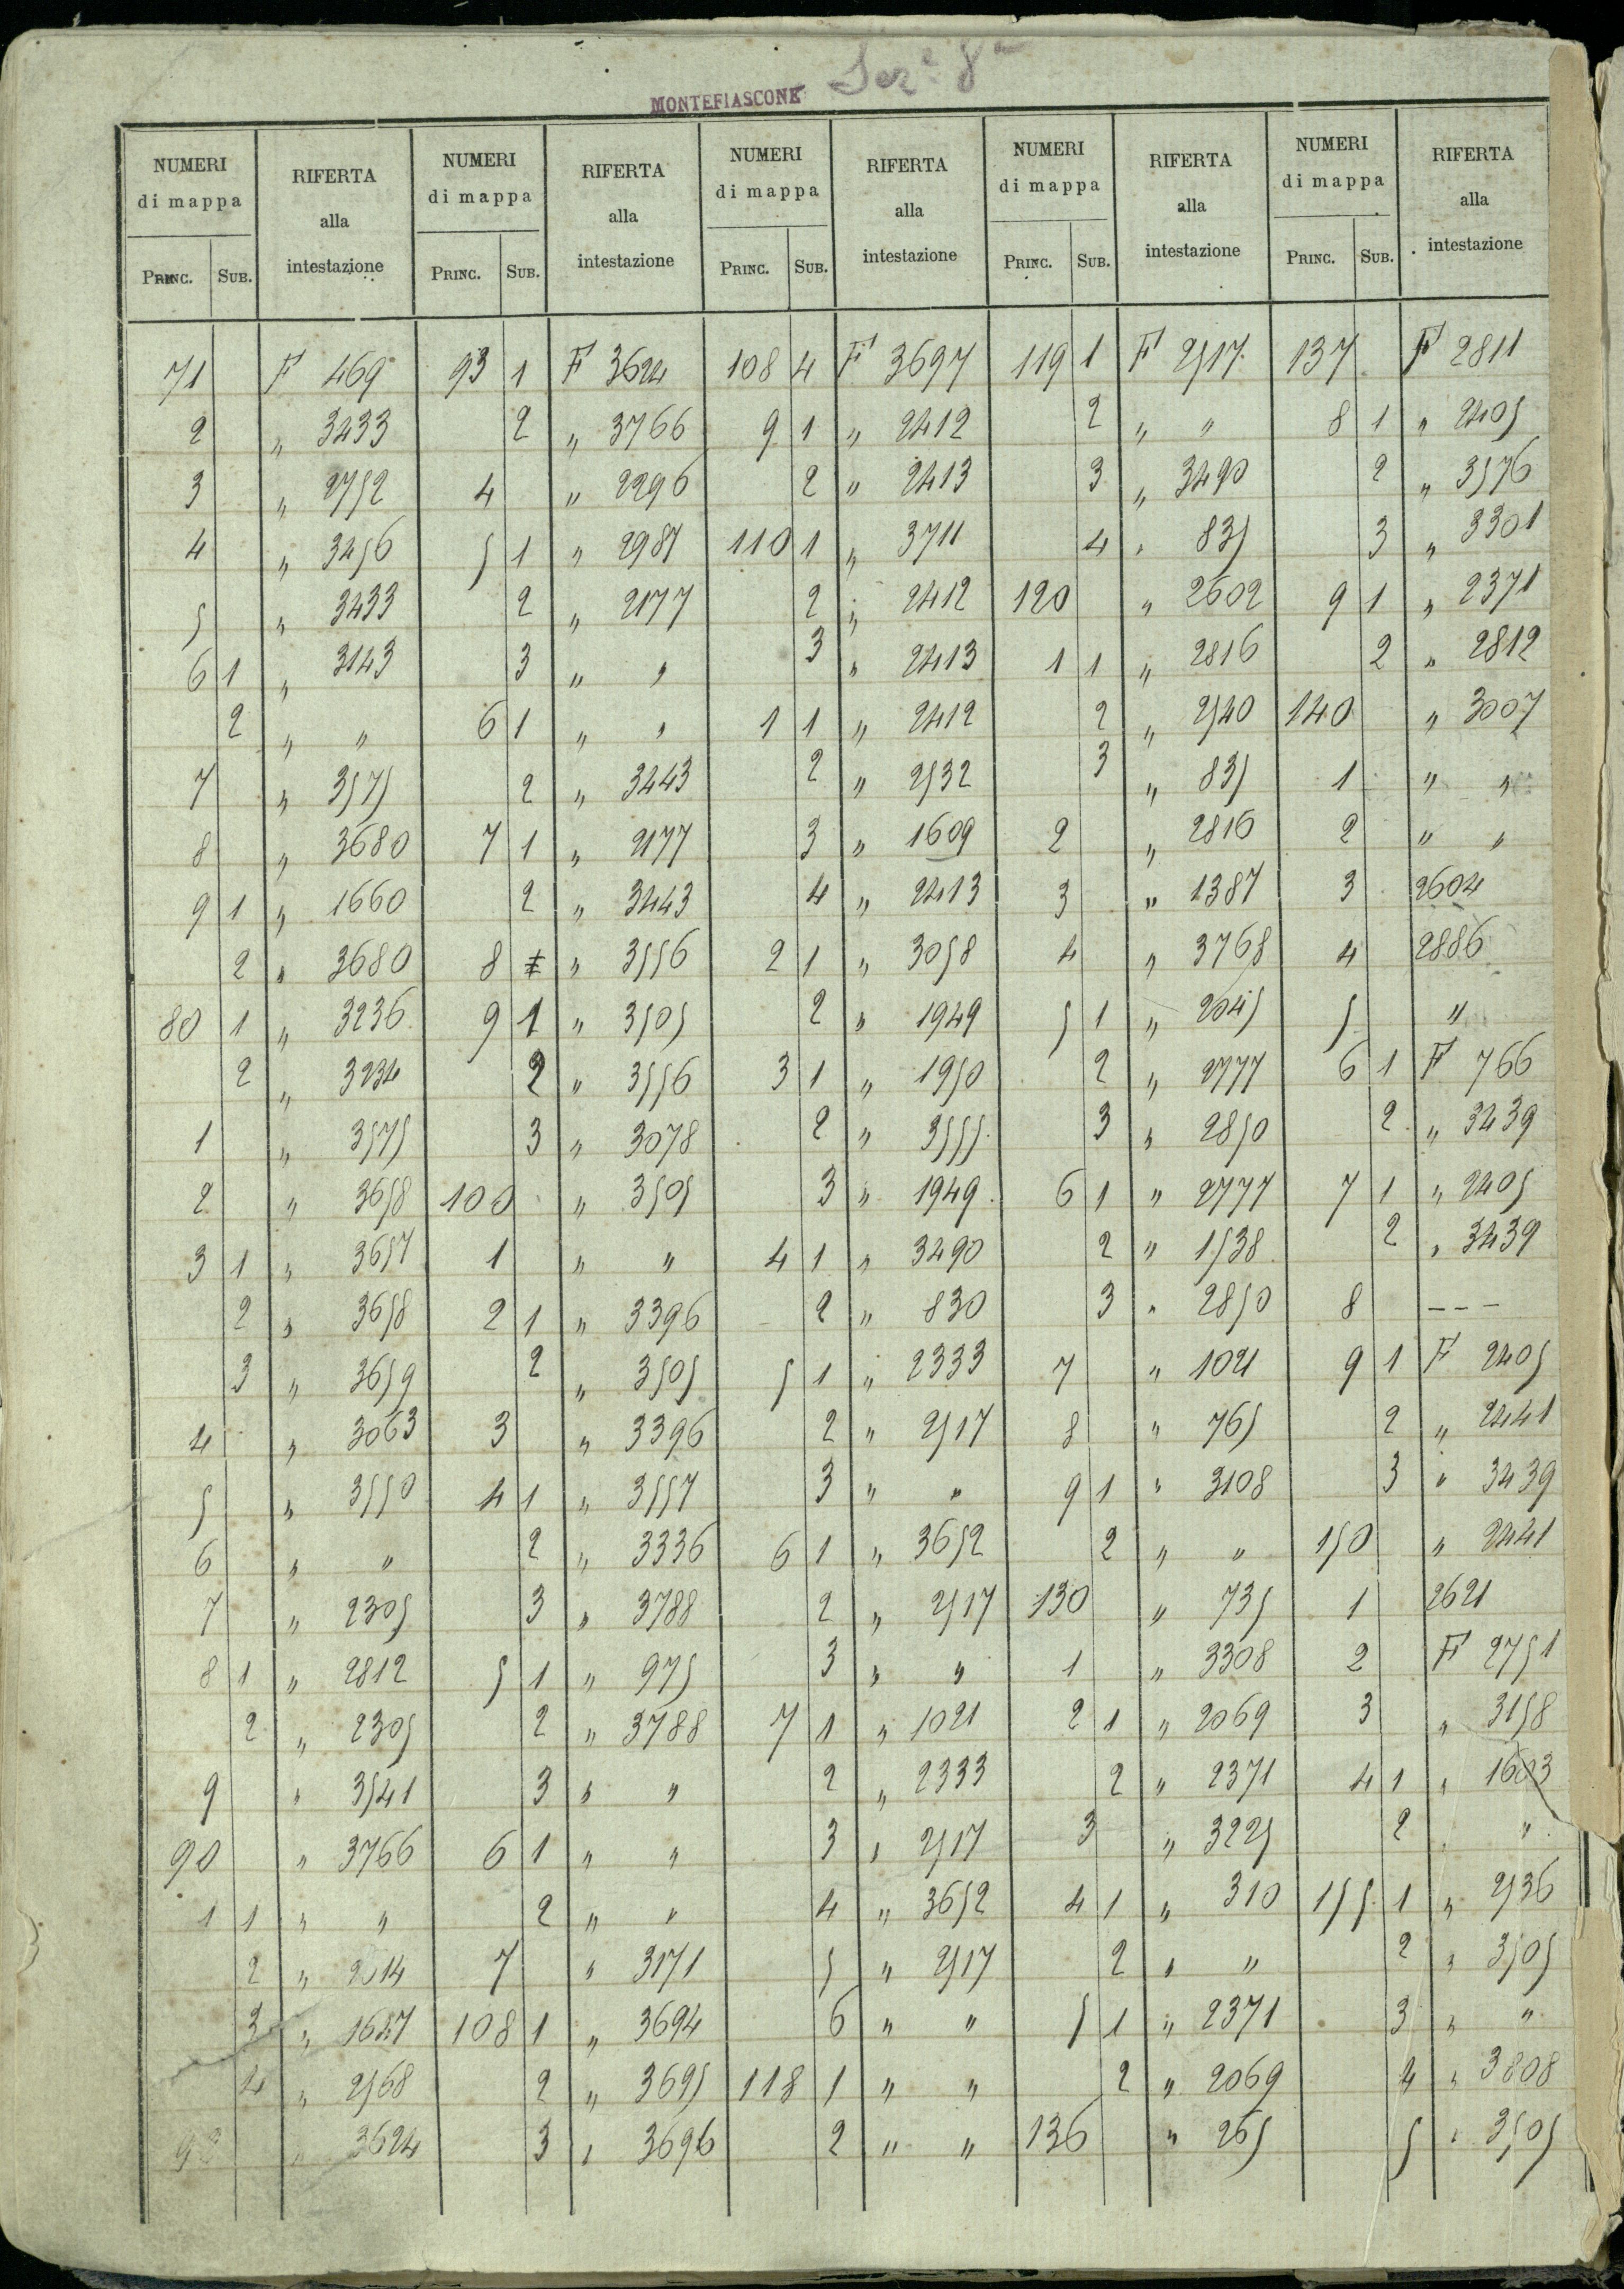 MONTEFIASCONE Sez.e 8a
NUMERI di mappa RIFERTA alla intestazione NUMERI di mappa RIFERTA alla intestazione NUMERI di mappa RIFERTA alla intestazione NUMERI di mappa RIFERTA alla intestazione NUMERI di mappa RIFERTA alla intestazione
PRINC. SUB. PRINC. SUB. PRINC. SUB. PRINC. SUB. PRINC. SUB.
71 F 469 93 1 F 3624 108 4 F 3697 119 1 F 2517 137 F 2811
2 " 3433 2 " 3766 9 1 " 2412 2 " " 8 1 " 2405
3 " 2752 4 " 2296 2 " 2413 3 " 3490 2 " 3576
4 " 3456 5 1 " 2987 110 1 " 3711 4 " 835 3 " 3301
5 " 3433 2 " 2177 2 " 2412 120 " 2602 9 1 " 2371
6 1 " 3143 3 " " 3 " 2413 1 1 " 2816 2 " 2812
2 " " 6 1 " " 1 1 " 2412 2 " 2540 140 " 3007
7 " 3575 2 " 3443 2 " 2532 3 " 835 1 " "
8 " 3680 7 1 " 2177 3 " 1609 2 " 2816 2 " "
9 1 " 1660 2 " 3443 4 " 2413 3 " 1387 3 2604
2 " 3680 8 " 3556 2 1 " 3058 4 " 3768 4 2886
80 1 " 3236 9 1 " 3505 2 " 1949 5 1 " 2045 5 "
2 " 3234 2 " 3556 3 1 " 1950 2 " 2777 6 1 F 766
1 " 3575 3 " 3078 2 " 3555 3 " 2850 2 " 3439
2 " 3658 100 " 3505 3 " 1949 6 1 " 2777 7 1 " 2405
3 1 " 3657 1 " " 4 1 " 3490 2 " 1538 2 " 3439
2 " 3658 2 1 " 3396 2 " 830 3 " 2850 8 ---
3 " 3659 2 " 3505 5 1 " 2333 7 " 1021 9 1 F 2405
4 " 3063 3 " 3396 2 " 2517 8 " 765 2 " 2441
5 " 3550 4 1 " 3557 3 " " 9 1 " 3108 3 " 3439
6 " " 2 " 3336 6 1 " 3652 2 " " 150 " 2441
7 " 2305 3 " 3788 2 " 2517 130 " 735 1 2621
8 1 " 2812 5 1 " 975 3 " " 1 " 3308 2 F 2751
2 " 2305 2 " 3788 7 1 " 1021 2 1 " 2069 3 " 3158
9 " 3541 3 " " 2 " 2333 2 " 2371 4 1 " 1603
90 " 3766 6 1 " " 3 " 2517 3 " 3225 2 " "
1 1 " " 2 " " 4 " 3652 4 1 " 310 155 1 " 2536
2 " 2514 7 " 3171 5 " 2517 2 " " 2 " 3505
3 " 1627 108 1 " 3694 6 " " 5 1 " 2371 3 " "
4 " 2568 2 " 3695 118 1 " " 2 " 2069 4 " 3808
92 " 3624 3 " 3696 2 " " 136 " 265 5 " 3505